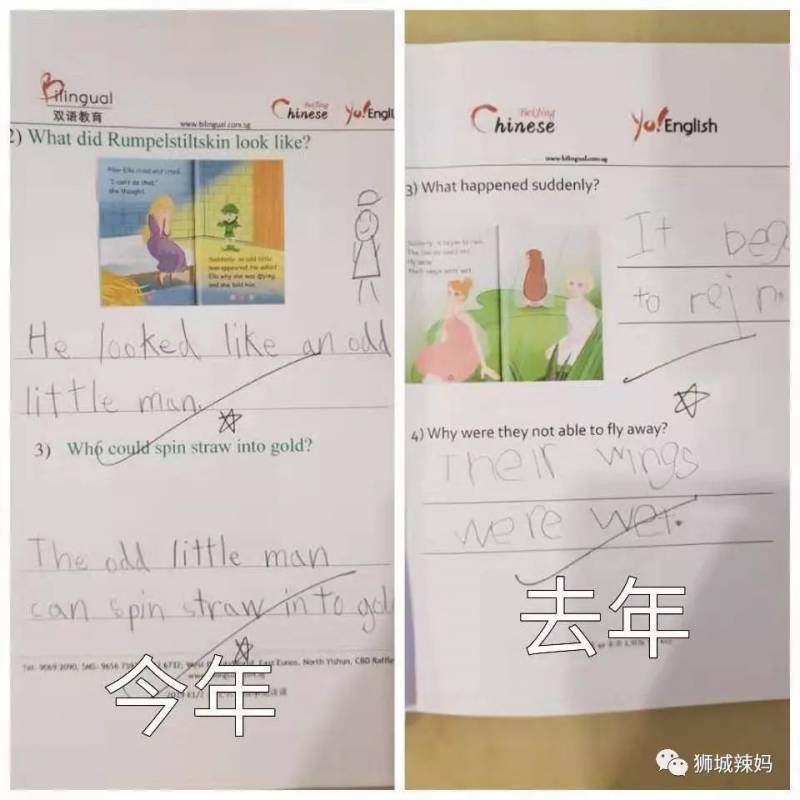 Bilingual
双语教育
www.bilingual.com.sg
BeiJing
Chinese
Yo!Engl
2) What did Rumpelstiltskin look like?
Poor Ella cried and cried.
"I can't do that,"
she thought.
Suddenly, an odd little
man appeared. He asked
Ella why she was crying,
and she told him.
He looked like an odd
little man.
3) Who could spin straw into gold?
The odd little man
can spin straw into gol
今年
BeiJing
Chinese
Yo!English
www.bilingual.com.sg
3) What happened suddenly?
Suddenly, it began to rain.
Their wings were wet.
It beg
to rejn.
4) Why were they not able to fly away?
Their wings
were wet.
去年
狮城辣妈